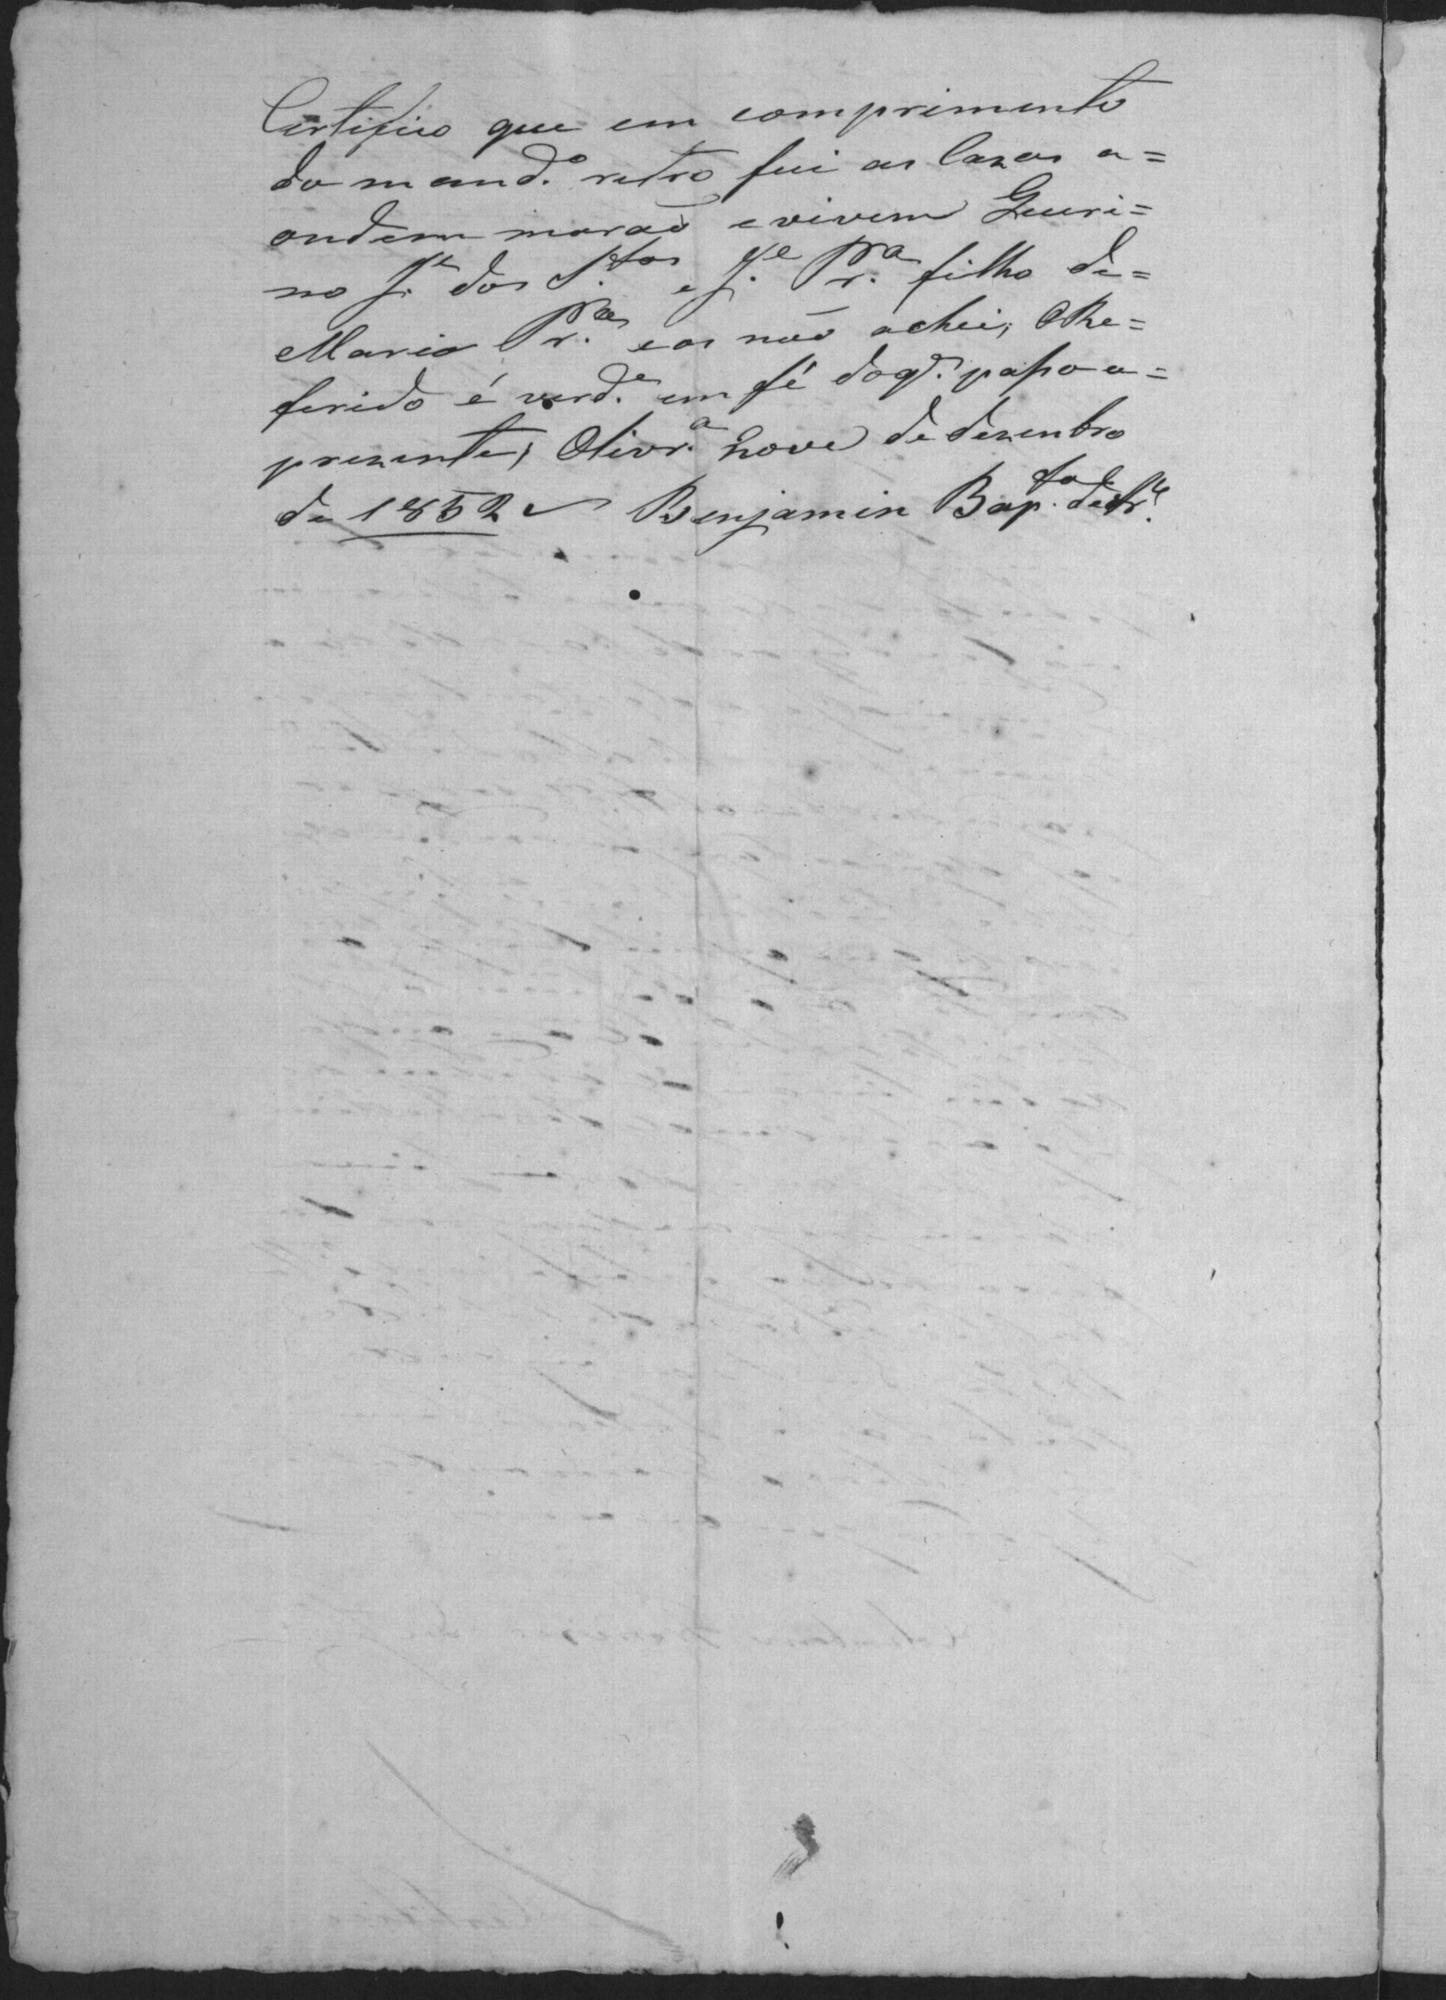 Certifico que em comprimento
do mand.º retro fui as Cazas a=
ondem morão e vivem Queri=
no J.e dos S.tos e J.e Pr.a filho de=
Maria Pr.a e os não achei; O Re=
ferido é verd.e em fé do q.' passo a=
prezente, Olivr.a nove de dezembro
de 1852 Benjamin Bap.ta de